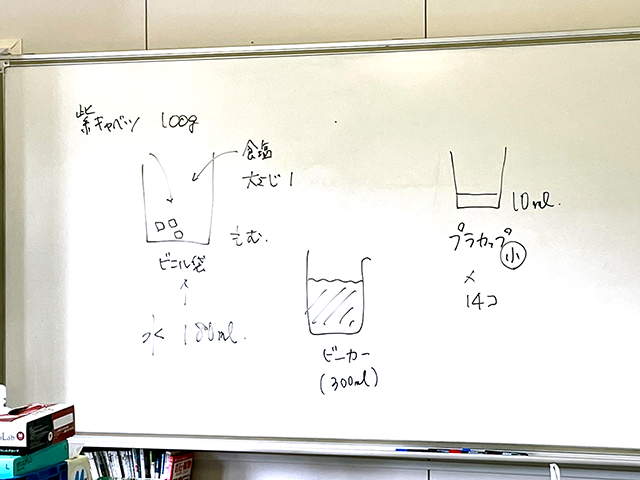 紫キャベツ 100g
食塩
大さじ1
もむ.
ビニル袋
水 180ml.
ビーカー
(300ml)
10ml.
プラカップ 小
×
14コ